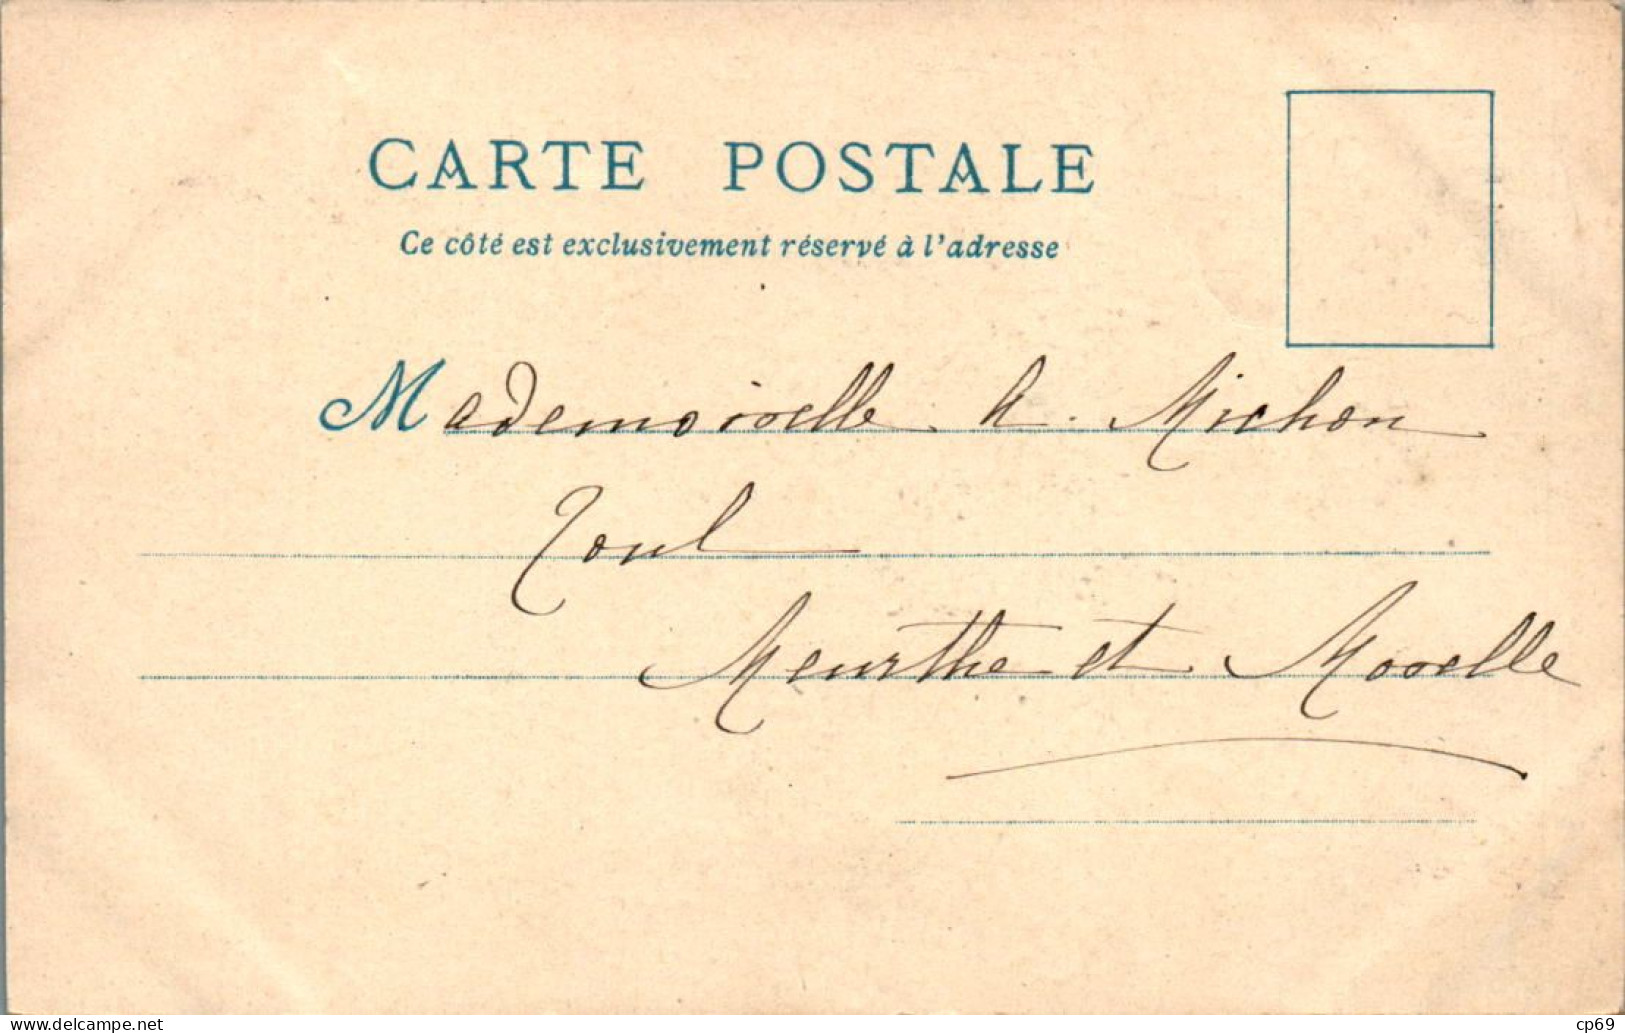 CARTE POSTALE
Ce côté est exclusivement réservé à l'adresse
Mademoiselle h. Michon
Toul
Meurthe et Moselle
www.delcampe.net
cp69